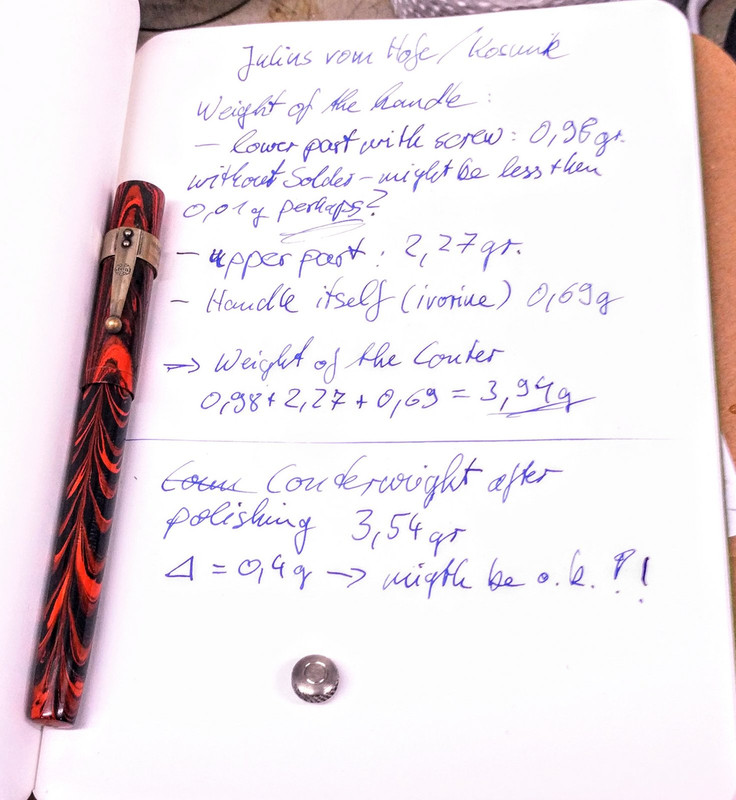 Julius vom Hofe / Kosmik
Weight of the handle :
- lower part with screw : 0,98 gr.
without Solder - might be less then
0,01 g perhaps?
- upper part : 2,27 gr.
- Handle itself (ivorine) 0,69 g
=> Weight of the Conter
0,98 + 2,27 + 0,69 = 3,94 g
Conderweight after
polishing 3,54 gr
Δ = 0,4 g -> migth be o.k. ?!